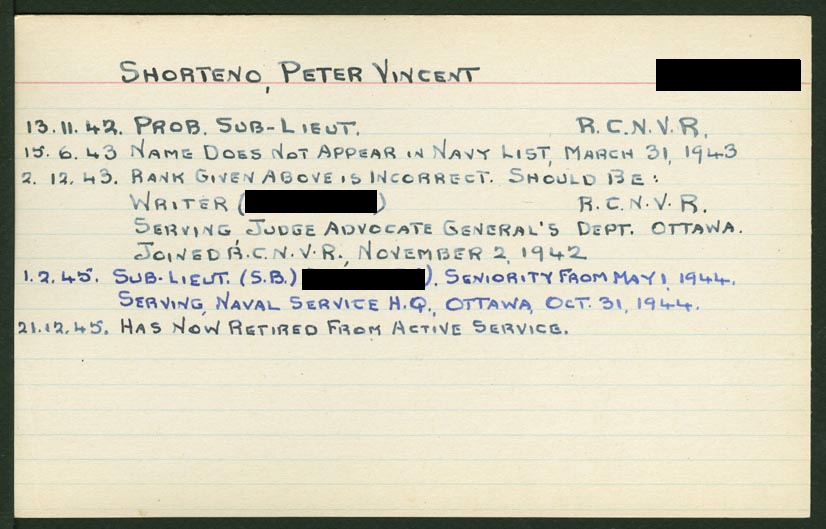 SHORTENO, PETER VINCENT
13.11.42. PROB. SUB-LIEUT. R.C.N.V.R.
15.6.43 NAME DOES NOT APPEAR IN NAVY LIST, MARCH 31, 1943
2.12.43. RANK GIVEN ABOVE IS INCORRECT. SHOULD BE:
WRITER ( ) R.C.N.V.R.
SERVING, JUDGE ADVOCATE GENERAL'S DEPT. OTTAWA.
JOINED R.C.N.V.R., NOVEMBER 2, 1942
1.2.45. SUB-LIEUT. (S.B.) ), SENIORITY FROM MAY 1, 1944.
SERVING, NAVAL SERVICE H.Q., OTTAWA, OCT. 31, 1944.
21.12.45. HAS NOW RETIRED FROM ACTIVE SERVICE.